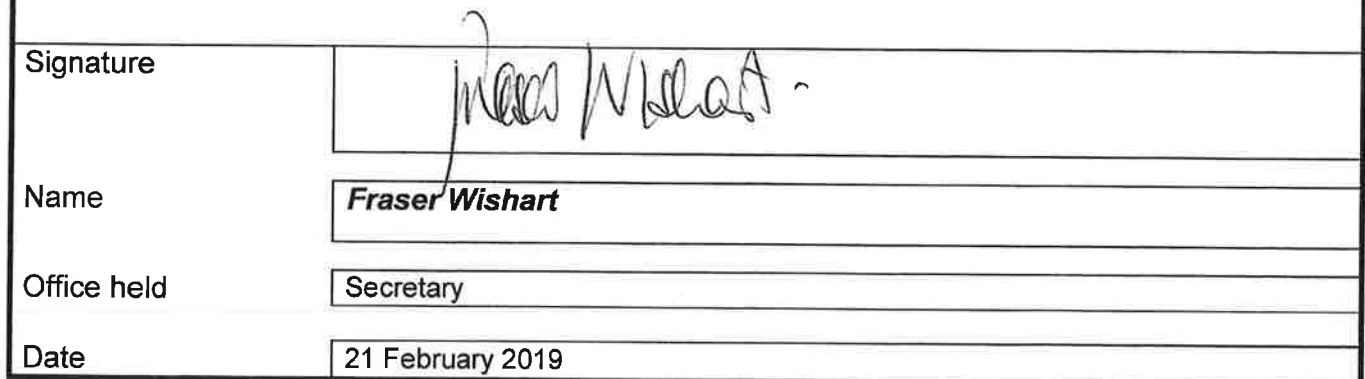 Signature Fraser Wishart
Name Fraser Wishart
Office held Secretary
Date 21 February 2019